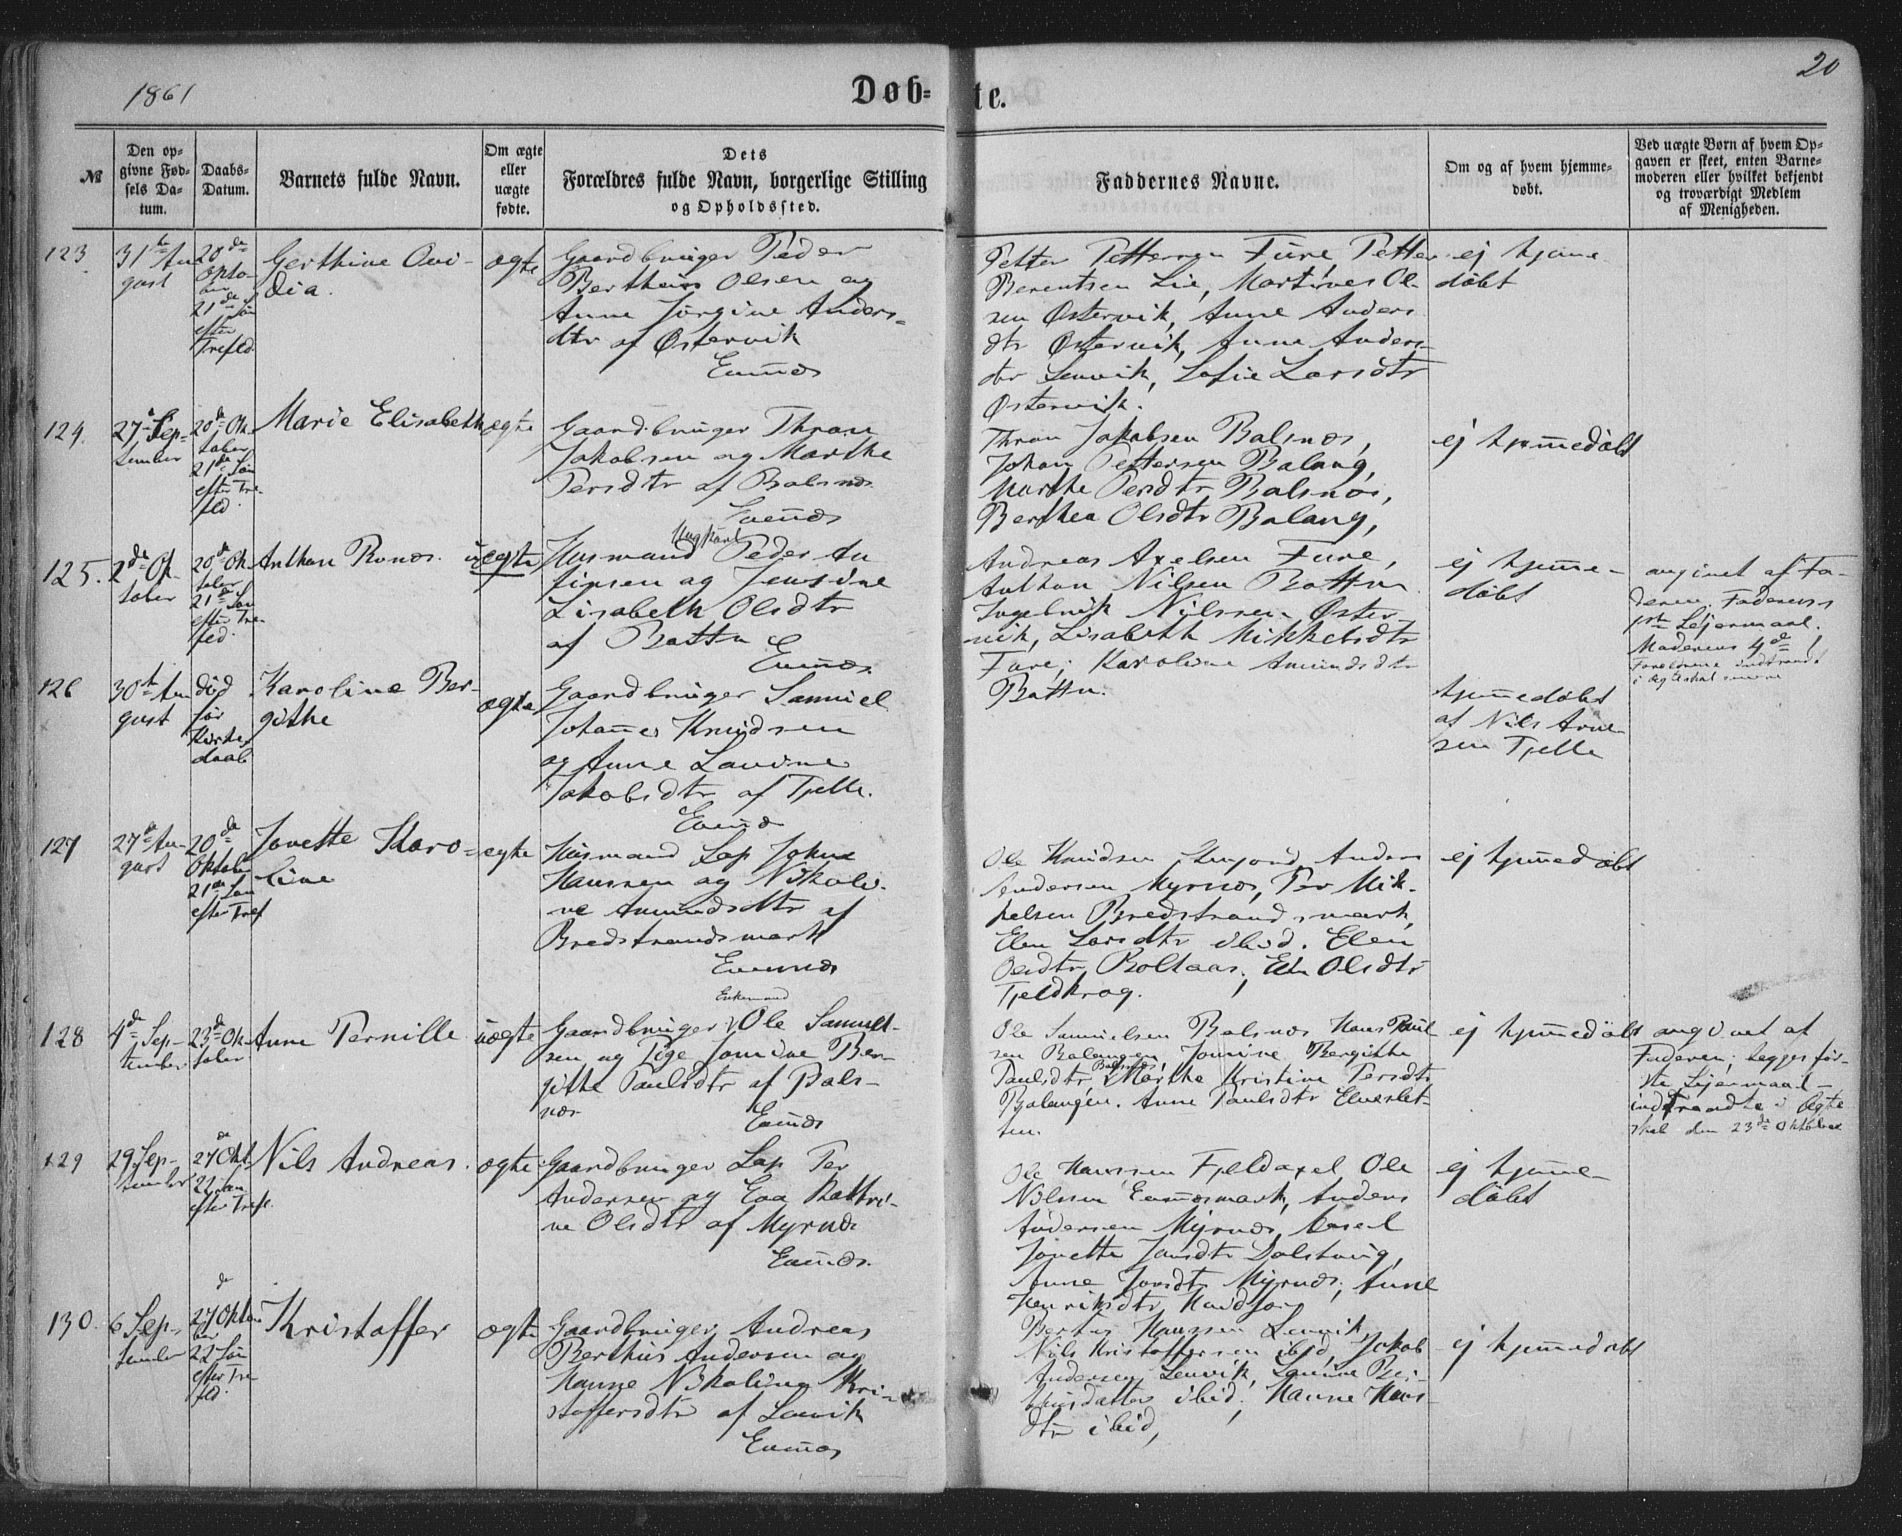 1861
Døb-
te.
20
№
Den op-
givne Fød-
sels Da-
tum.
Daabs-
Datum.
Barnets fulde Navn.
Om ægte
eller
uægte
fødte.
Dets
Forældres fulde Navn, borgerlige Stilling
og Opholdssted.
Faddernes Navne.
Om og af hvem hjemme-
døbt.
Ved uægte Børn af hvem Op-
gaven er skeet, enten Barne-
moderen eller hvilket bekjendt
og troværdigt Medlem
af Menigheden.
123
31te Au
gust
20de
Okto-
ber
21de Søn
efter
Trefld.
Gerthine Ovi-
dia.
ægte
Gaardbruger Peder
Bertheus Olsen og
Anne Jørgine Anders-
dtr af Østervik
Evenæs
Petter Pettersen Fure, Petter
Berentsen Lie, Martines Ol
sen Østervik, Anne Anders
dtr Østervik, Anne Anders-
dtr Lenvik, Sofie Larsdtr
Østervik.
ej hjeme
døbt
124.
27 Sep-
tember
20de Ok-
tober
21de Søn
efter Tre-
fld.
Marie Elisabeth
ægte
Gaardbruger Thron
Jakobsen og Marthe
Persdtr af Balsnæs
Evenæs
Thron Jakobsen Balsnæs,
Johan Pettersen Balang,
Marthe Persdtr Balsnæs,
Berthea Olsdtr Balang,
ej hjemedøbt
125.
2de Ok-
tober
20de Ok-
tober
21de Søn
efter Tre-
fld.
Anthon Ronæs.
uægte
Ungkarl
Husmand Peder An
finsen og Jensine
Lisabeth Olsdtr
af Botten
Evenæs
Andreas Axelsen Fure,
Anthon Nilsen Botten
Ingebrik Nilssen Øster
vik, Lisabeth Mikkelsdtr
Fure, Karoline Amundsdtr
Botten.
ej hjemme-
døbt
angivet af Fa-
deren. Faderens
1ste Lejermaal.
Moderens 4de
Forældrene indtraadt
i Ægteskab
126
30te Au
gust
død
før
Kirke-
daab
Karoline Ber-
githe
ægte
Gaardbruger Samuel
Johannes Knudsen
og Anne Lovine
Jakobsdtr af Tjelle.
Evenæs
hjemedøbt
af Nils Arne
sen Tjelle
127
27de Au-
gust
20de
Oktober
21de Søn
efter Tref
Jonette Karo-
line
ægte
Husmand Lap Johan
Hanssen og Nikoli-
ne Amundsdtr af
Bredstrandsmark
Evenæs
Ole Knudsen Anders
Andersen Myrnæs, Per Mik-
kelsen Bredstrandsmark,
Elen Larsdtr ibid. Elen
Olsdtr Boltaas, Eln Olsdtr
Fjeldkrog.
ej hjemedøbt
128
4de Sep-
tember
23de Ok-
tober
Anne Pernille
uægte
Enkemand
Gaardbruger Ole Samuel-
sen og Pige Jonine Ber-
githe Paulsdtr af Bals-
næs
Evenæs
Ole Samuelsen Balsnæs Hans Poul
sen Balangen, Jonine Bergitthe
Balsnæs
Paulsdtr, Marthe Kristine Persdtr
Balangen. Anne Paulsdtr Elveslet-
ten.
ej hjemedøbt
angivet af
Faderen; begges før-
ste Lejermaal-
indtraadte i Ægte
skab den 23de Oktober
129
29 Sep-
tember
27de Okt.
22 Søn
efter Tref.
Nils Andreas.
ægte
Gaardbruger Lap Per
Andersen og Eva Kathri-
ne Olsdtr af Myrnæs
Evenæs.
Ole Hanssen Fjeldaxel Ole
Nilssen Evenæsmark, Anders
Andersen Myrnæs,
Jonette Jonsdtr
Anne Jonsdtr Myrnæs, Anne
Henriksdtr
ej hjeme
døbt
130.
6 Sep-
tember
27de Okto
ber
22 Søn
efter Tre
fld.
Kristoffer
ægte
Gaardbruger Andreas
Berthus Andersen og
Hanne Nikoline Kri-
stoffersdtr af Lenvik
Evenæs
Hanssen Lenvik,
Nils Kristoffersen ibid, Jakob
Andersen Lenvik, Lovine Ber-
thusdatter ibid, Hanne Hans
dtr ibid,
ej hjemedøbt